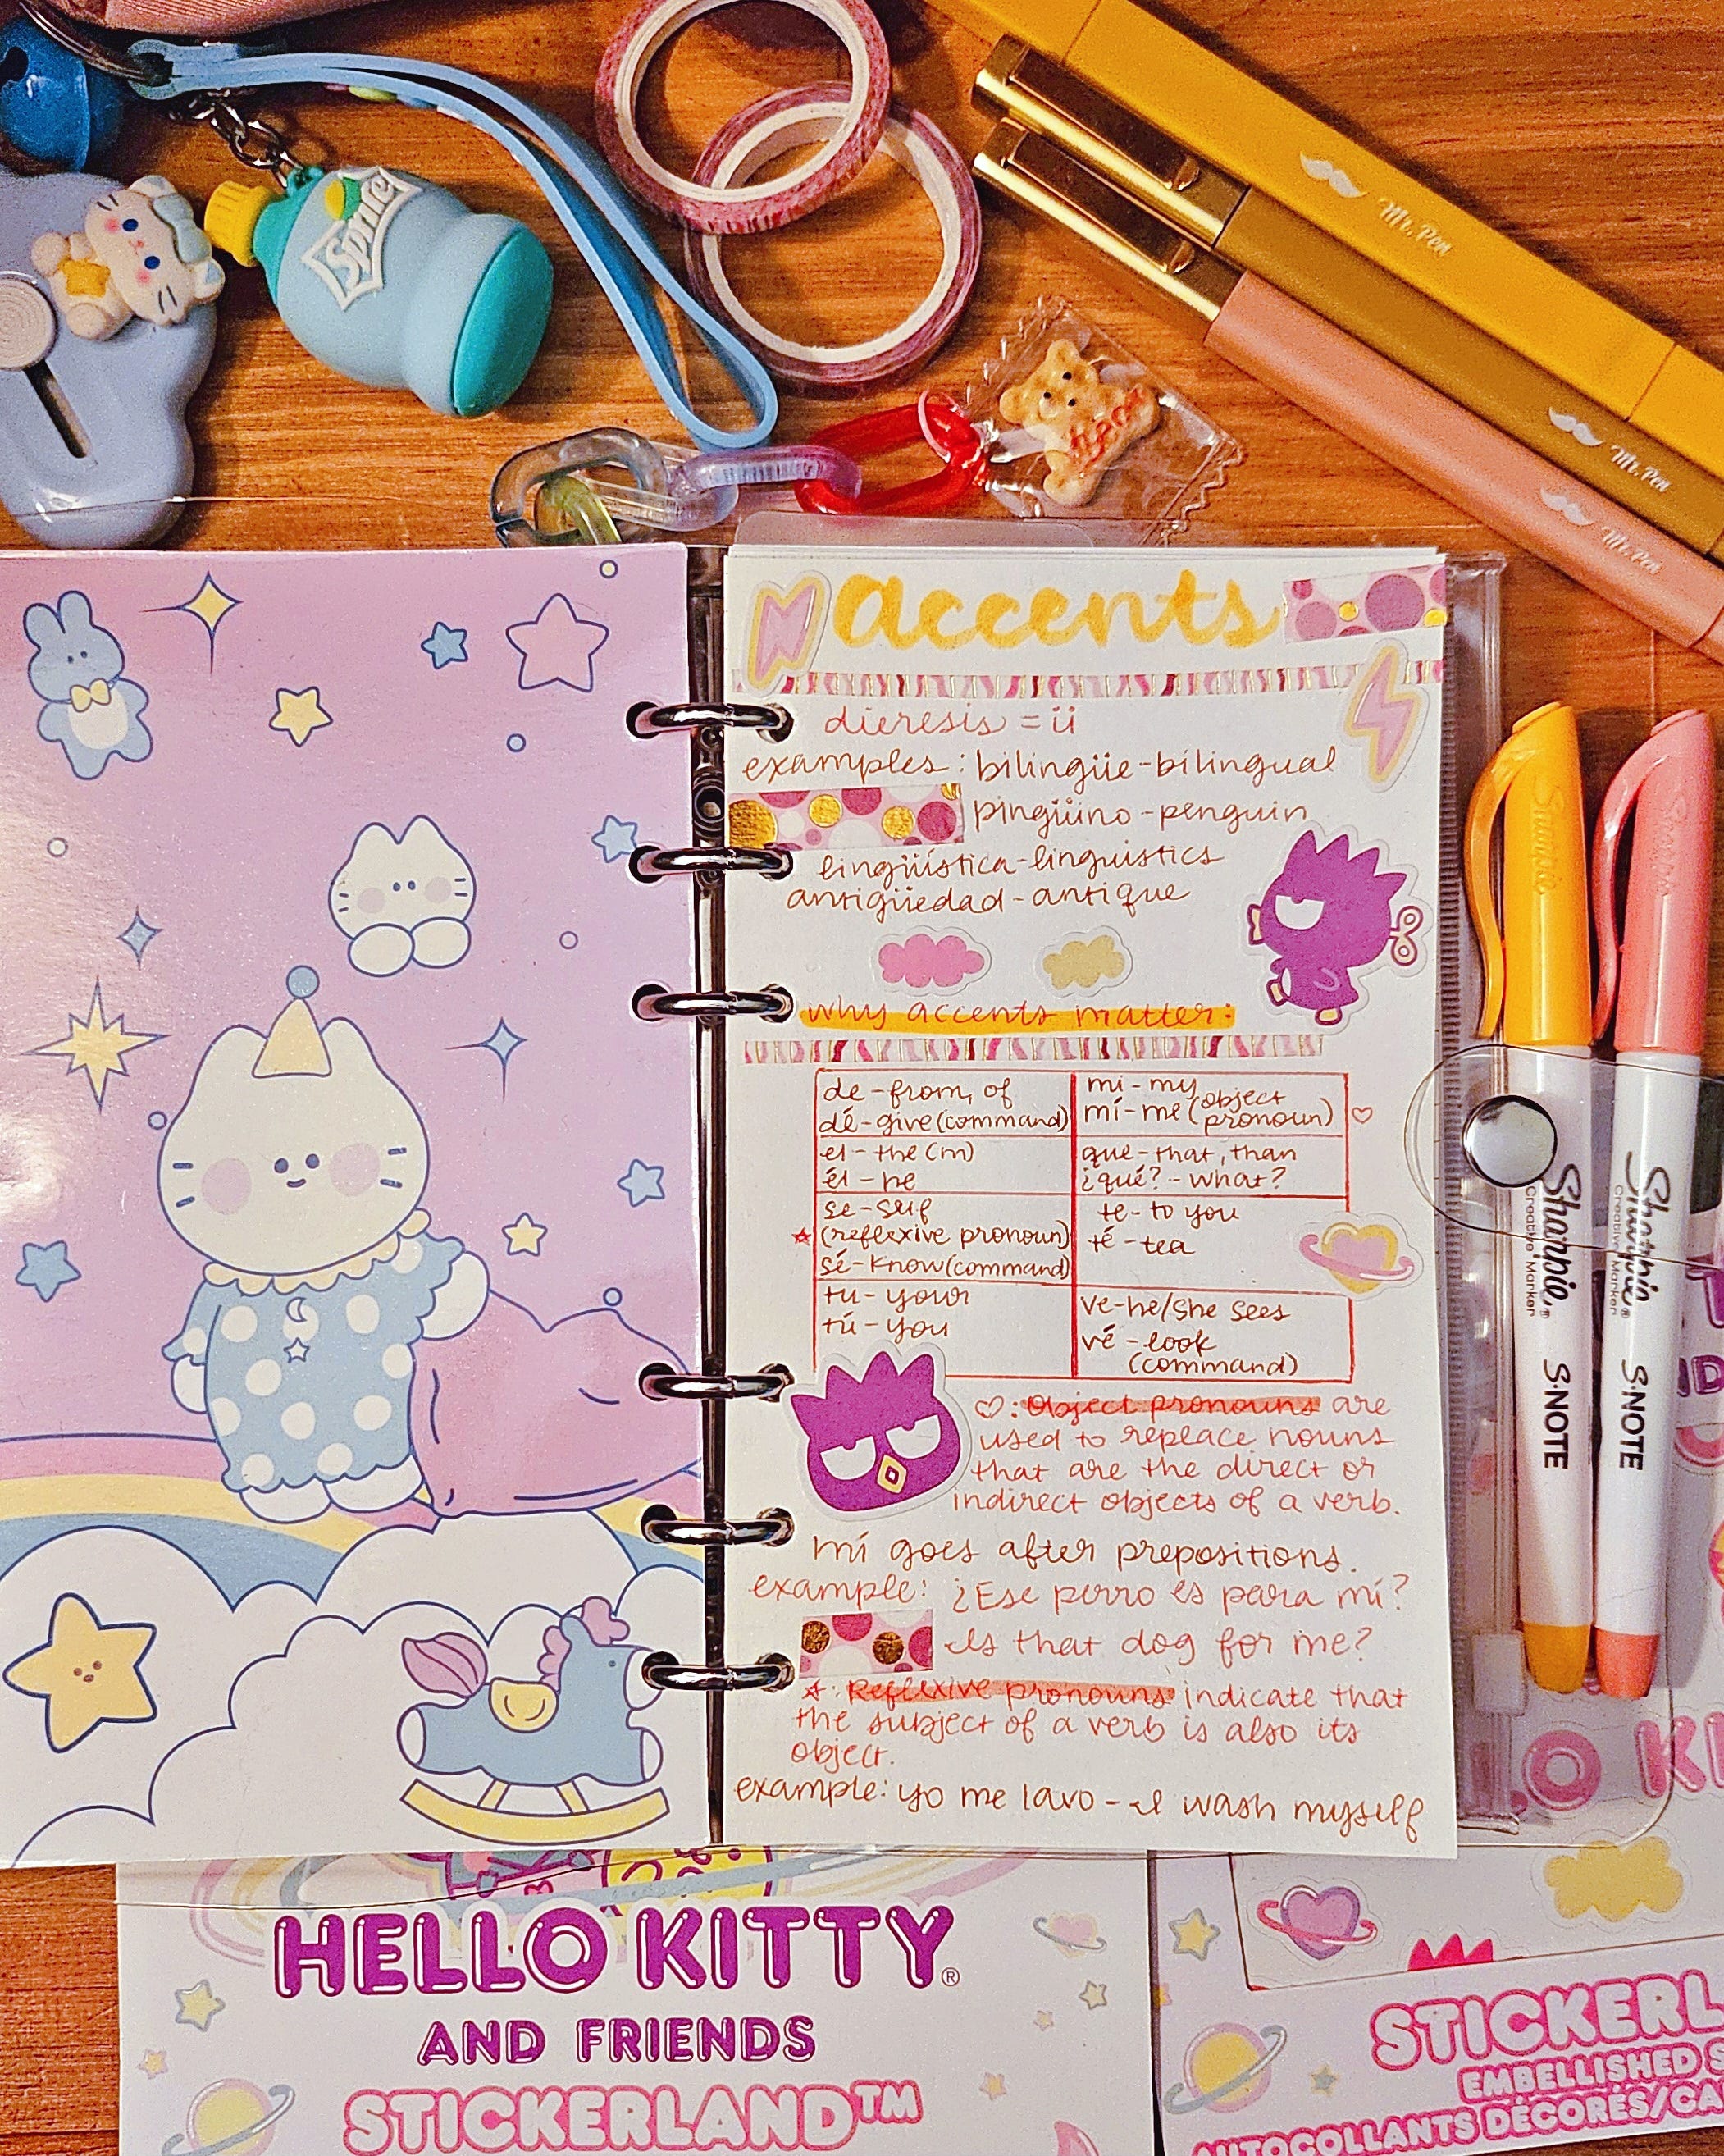 Sprite
Mr. Pen
Mr. Pen
Mr. Pen
accents
dieresis = ü
examples: bilingüe - bilingual
pingüino - penguin
lingüística - linguistics
antigüedad - antique
why accents matter:
de - from, of
dé - give (command)
mi - my
mí - me (object pronoun) ♡
el - the (m)
él - he
que - that, than
¿qué? - what?
se - self
☆ (reflexive pronoun)
sé - know (command)
te - to you
té - tea
tu - your
tú - you
ve - he/she sees
vé - look
(command)
♡: Object pronouns are
used to replace nouns
that are the direct or
indirect objects of a verb.
mí goes after prepositions.
example: ¿Ese perro es para mí?
Is that dog for me?
☆: Reflexive pronouns indicate that
the subject of a verb is also its
object.
example: yo me lavo - I wash myself
Sharpie
Sharpie® S·NOTE
Creative Marker
Sharpie
Sharpie® S·NOTE
Creative Marker
HELLO KITTY®
AND FRIENDS
STICKERLAND™
LO KI
STICKERL
EMBELLISHED S
AUTOCOLLANTS DÉCORÉS/CA